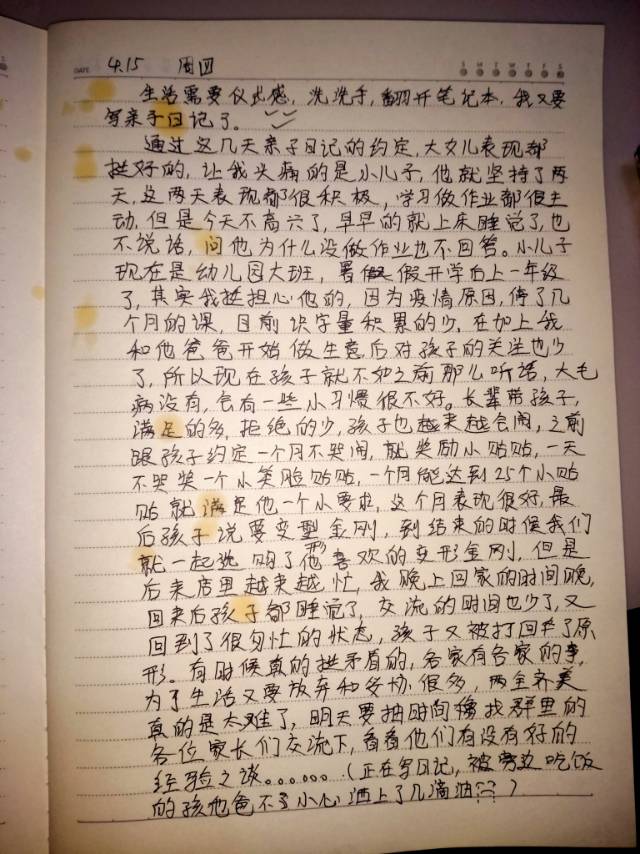 DATE 4.15 周四
S M T W T F S
生活需要仪式感，洗洗手，翻开笔记本，我又要
写亲子日记了。
通过这几天亲子日记的约定，大女儿表现都
挺好的，让我头痛的是小儿子，他就坚持了两
天，这两天表现都很积极，学习做作业都很主
动，但是今天不高兴了，早早的就上床睡觉了，也
不说话，问他为什么没做作业也不回答。小儿子
现在是幼儿园大班，暑假开学后上一年级
了，其实我挺担心他的，因为疫情原因，停了几
个月的课，目前识字量积累的少，在加上我
和他爸爸开始做生意后对孩子的关注也少
了，所以现在孩子就不如之前那么听话，大毛
病没有，会有一些小习惯很不好。长辈带孩子，
满足的多，拒绝的少，孩子也越来越会闹，之前
跟孩子约定一个月不哭闹，就奖励小贴贴，一天
不哭奖一个小笑脸贴贴，一个月能达到25个小贴
贴就满足他一个小要求，这个月表现很好，最
后孩子说要变型金刚，到结束的时候我们
就一起选购了他喜欢的变形金刚，但是
后来店里越来越忙，我晚上回家的时间晚，
回来后孩子都睡觉了，交流的时间也少了，又
回到了很匆忙的状态，孩子又被打回了原
形。有时候真的挺矛盾的，各家有各家的事，
为了生活又要放弃和妥协很多，两全齐美
真的是太难了，明天要抽时间像找群里的
各位家长们交流下，看看他们有没有好的
经验之谈。。。。。。。（正在写日记，被旁边吃饭
的孩他爸不小心洒上了几滴油）